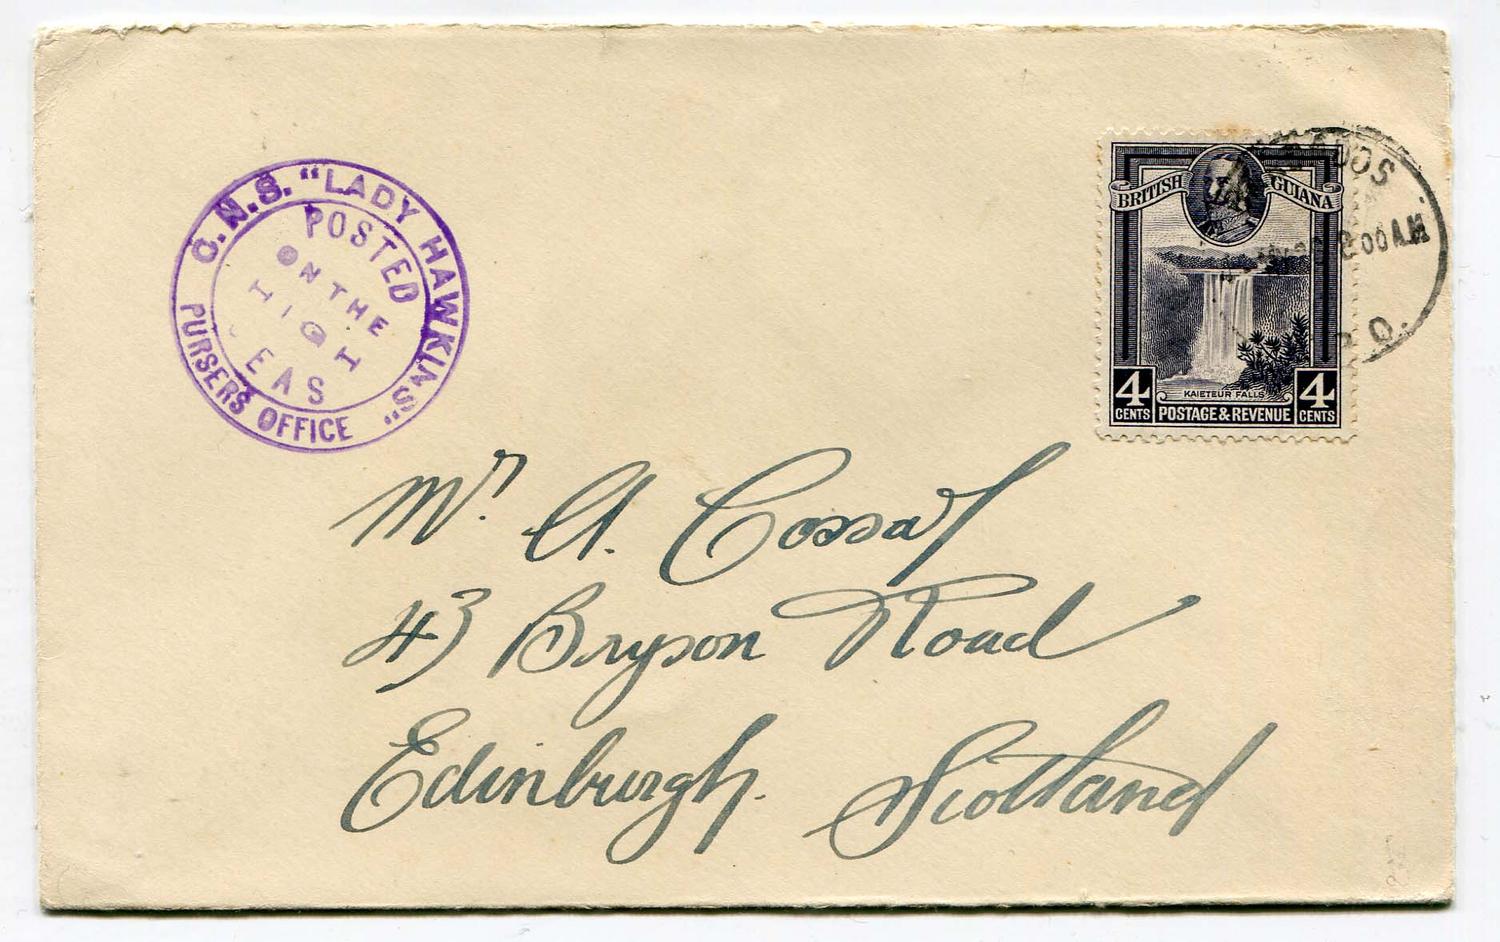 C.N.S. "LADY HAWKINS"
POSTED
ON THE
HIGH
SEAS
PURSERS OFFICE
BRITISH GUIANA
KAIETEUR FALLS
4 CENTS POSTAGE & REVENUE 4 CENTS
00 AM
P.O.
Mr. A.
43 Bryson Road
Edinburgh. Scotland